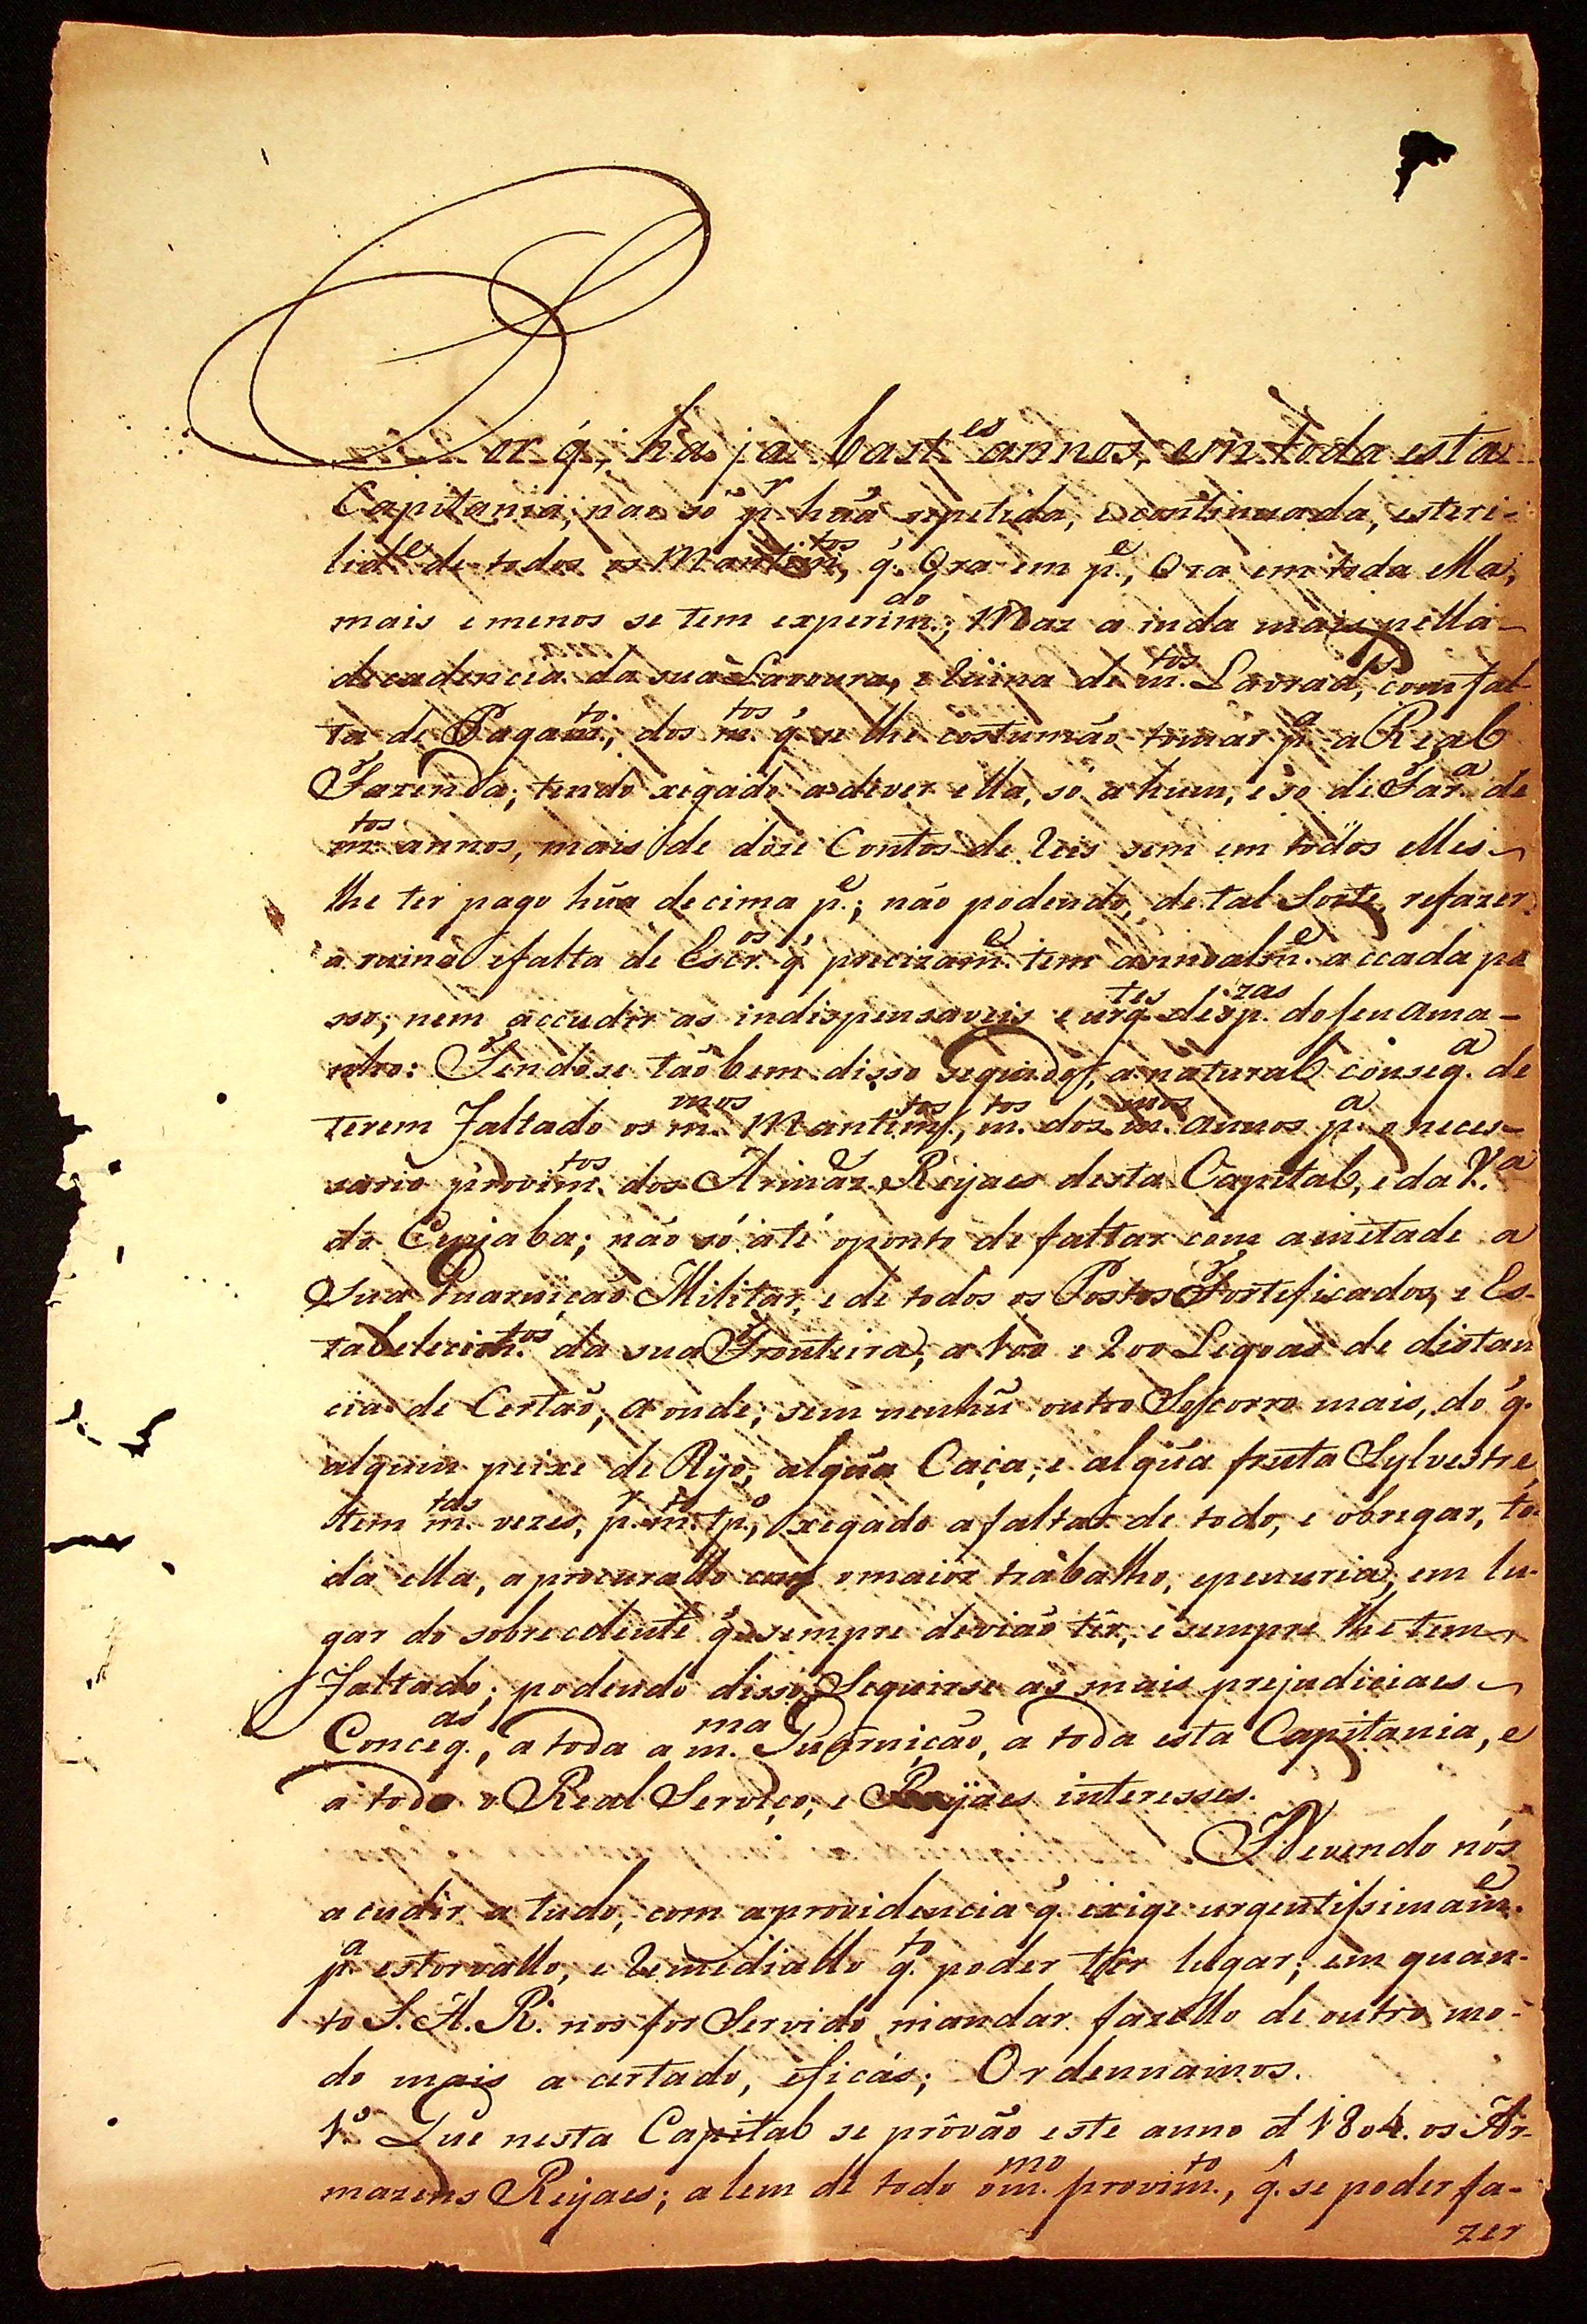 Por q̃, ha ja bast.es annos, em toda esta
Capitania, não só p.r hũa repetida, e continuada, esteri-
lid.e de todos os Mantim.tos, q̃. Ora em p.e, Ora em toda ella,
mais e menos se tem experim.do; Maz a inda mais pella
decadencia da sua Lavoura, e Rũina de m.tos Lavrad.es, com fal-
ta de Pagam.to; dos m.tos q̃. se lhe costumão tomar p.a a Real
Fazenda; tendo xegado a dever ella, só a hum, e só de Far.a de
m.tos annos, mais de doze Contos de Reis sem em todos elles
lhe ter pago hũa decima p.e; não podendo, de tal Sorte, refazer
a ruina e falta de Escr.os q̃ precizam.e tem annoalm.e a ccada pa
sso; nem accudir as indispensaveis e urg.tes desp.zas do seu ama-
nho: Sendose tão bem disso seguido, a natural conseq.a de
terem Faltado os m.mos Mantim.tos, m.tos dos m.mos annos p.a o neces-
sario provim.tos dos Armaz.es Reyaes desta Capital, e da V.a
do Cuyaba; não só até o ponto de faltar com a metade a
Sua Guarnição Militar, e de todos os Postos Forteficados, e Es-
tabelecim.tos da sua Fronteira; a 100 e 200 Legoas de distan
cia de Certão; a onde; sem nenhũ outro Socorro mais, do q̃.
algum peixe de Ryo, algũa Caça; e algũa fruta Sylvestre,
tem m.tas vezes, p.r m.to tp.o, xegado a faltar de todo, e obregar, to-
da ella, a procurallo com o maior trabalho, e penuria; em lu-
gar do sobrecelente q̃ sempre devião têr, e sempre lhe tem
Faltado; podendo disso Seguirse as mais prejudiciaes
Conceq.as, a toda a m.ma Guarnição, a toda esta Capitania, e
a todo o Real Serviço, e Reyaes interesses.
Devendo nós
acudir a tudo, com a providencia q̃. exige urgentissimam.e
p.a estorvallo, e Remediallo q.to poder têr lugar; em quan-
to S. A. R. nos for Servido mandar fazello de outro mo-
do mais a certado, eficás; Ordennamos.
1.o Que nesta Capital se prôvão este anno d 1804. os Ar-
mazens Reyaes; a lem de todo o m.mo provim.to, q̃. se poder fa-
zer